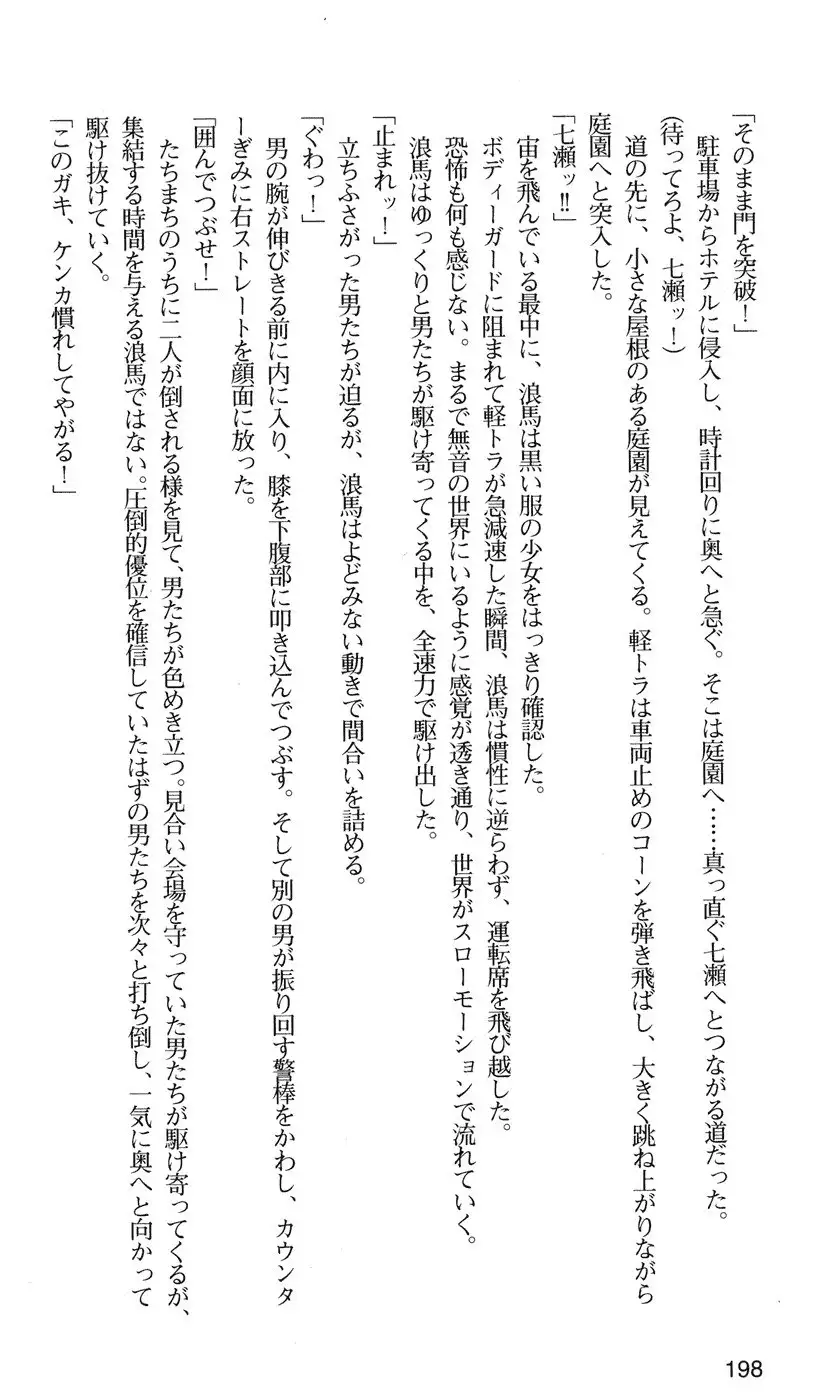 「そのまま門を突破！」
　駐車場からホテルに侵入し、時計回りに奥へと急ぐ。そこは庭園へ……真っ直ぐ七瀬へとつながる道だった。
（待ってろよ、七瀬ッ！）
　道の先に、小さな屋根のある庭園が見えてくる。軽トラは車両止めのコーンを弾き飛ばし、大きく跳ね上がりながら
庭園へと突入した。
「七瀬ッ!!」
　宙を飛んでいる最中に、浪馬は黒い服の少女をはっきり確認した。
　ボディーガードに阻まれて軽トラが急減速した瞬間、浪馬は慣性に逆らわず、運転席を飛び越した。
　恐怖も何も感じない。まるで無音の世界にいるように感覚が透き通り、世界がスローモーションで流れていく。
　浪馬はゆっくりと男たちが駆け寄ってくる中を、全速力で駆け出した。
「止まれッ！」
　立ちふさがった男たちが迫るが、浪馬はよどみない動きで間合いを詰める。
「ぐわっ！」
　男の腕が伸びきる前に内に入り、膝を下腹部に叩き込んでつぶす。そして別の男が振り回す警棒をかわし、カウンタ
ーぎみに右ストレートを顔面に放った。
「囲んでつぶせ！」
　たちまちのうちに二人が倒される様を見て、男たちが色めき立つ。見合い会場を守っていた男たちが駆け寄ってくるが、
集結する時間を与える浪馬ではない。圧倒的優位を確信していたはずの男たちを次々と打ち倒し、一気に奥へと向かって
駆け抜けていく。
「このガキ、ケンカ慣れしてやがる！」
198